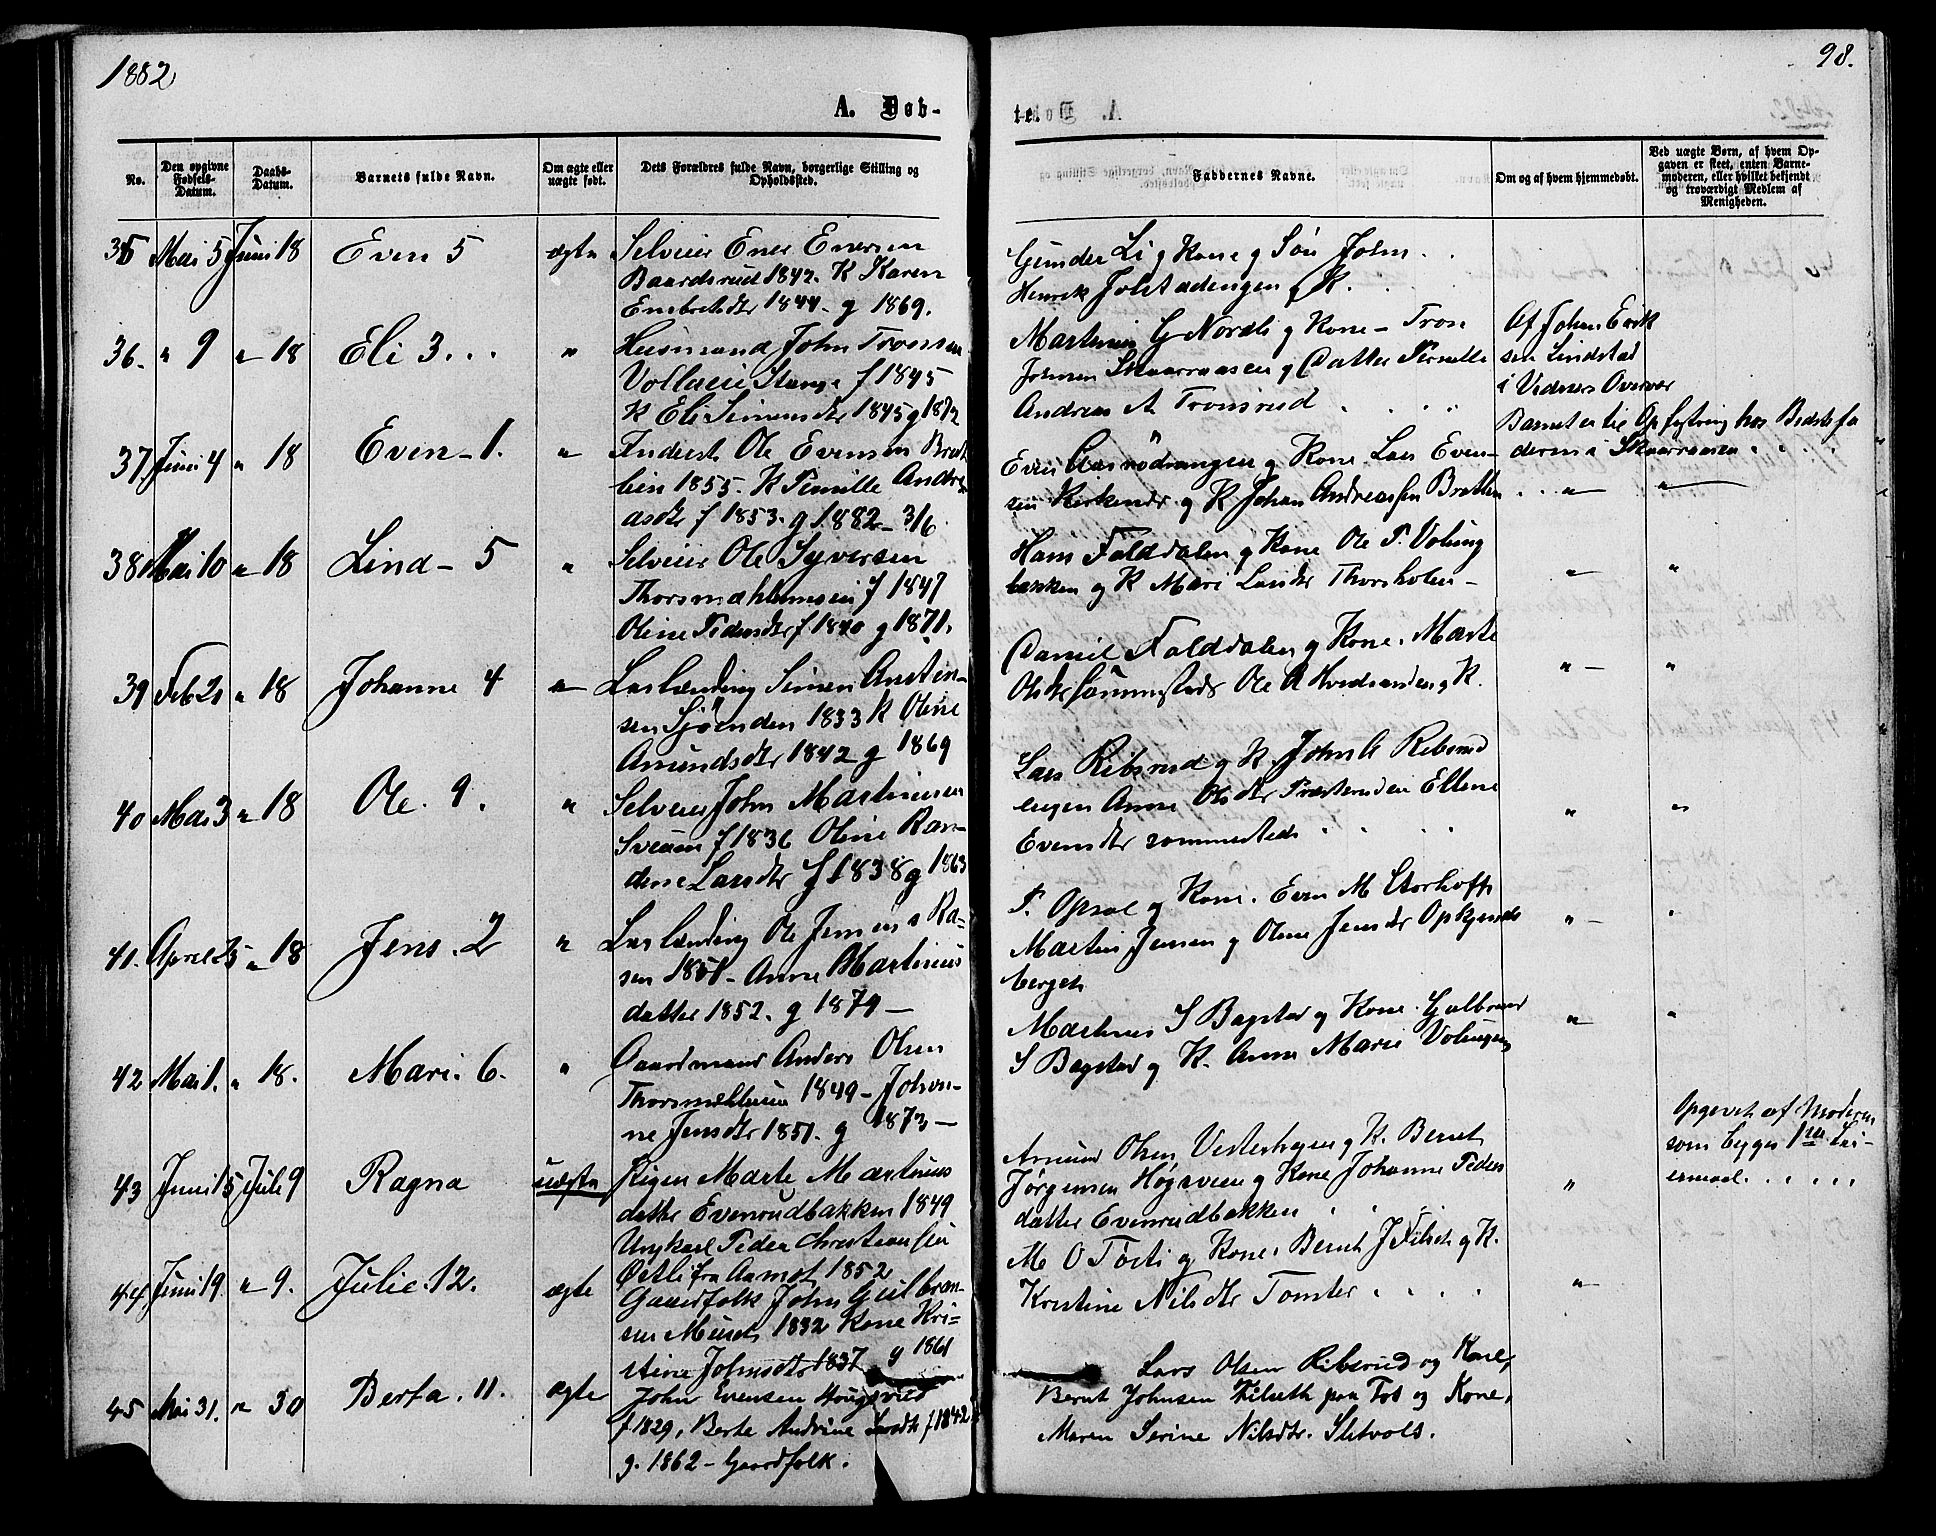 1882
98.
A. Døb-
te.
No.
Den opgivne Fødsels-Datum.
Daabs-Datum.
Barnets fulde Navn.
Om ægte eller uægte født.
Dets Forældres fulde Navn, borgerlige Stilling og Opholdssted.
Faddernes Navne.
Om og af hvem hjemmedøbt.
Ved uægte Børn, af hvem Opgaven er skeet, enten Barnemoderen, eller hvilket bekjendt og troværdigt Medlem af Menigheden.
35 Mai 5 Juni 18 Even 5 ægte Selveier Ener Enersen
Baardsrud 1842. K Karen
Embretsdtr 1844 - g 1869.
Gunder Li g Kone g Søn John
Henrik Jolstadengen g K.
36. " 9 " 18 Eli 3 " Husmand John Tronsen
Stange f 1845
K Eli Simensdtr 1845 g 1872
Martinus G Nordli g Kone - Tron
Johnsen Skaaraasen g Datter Pernille
Andreas A Tronsrud
Af Johan Erik
sen Lindstad
i Overvær
Barnet er til Opfostring hos Bedstefa
deren i Skaaraasen
37 Juni 4 " 18 Even - 1. " Inderst Ole Evensen Brat
lien 1855. K Pernille Andre
asdtr f 1853. g 1882 - 3/6
Even g Kone Lars Even-
sen g K Johan Andreassen Bratlien
38 Mai 10 " 18 Lind - 5 " Selveier Ole Syversen
Thorsmæhlumseie f 1847
Oline Pedersdtr f. 1840 g 1871.
Hans Falddalen g Kone Ole P. Voling
bakken g K Mari Larsdtr Thorsholen -
39 Feb 21 " 18 Johanne 4 " Løslænding Simen Austen-
sen Sjøenden 1833 K Oline
Amundsdtr 1842 g 1869
Daniel Falddalen g Kone. Marte
Olsdtr sammesteds Ole A g K.
40 Mai 3 " 18 Ole. 9. " Selveier John Martinusen
Sveum f 1836 Oline Ran-
dine Larsdtr f 1838 g 1863
Lars Ribsrud g K. John A Ribsrud
engen Anne Olsdtr Præsterudeie Ellene
Evensdtr sammesteds
41. April 25 " 18 Jens. 2 " Løslænding Ole Jensen Ra-
sen 1851 - Anne Martinus
datter 1852. g 1879 -
P. Opsal g Kone. Even M Storhoff
Martin Jensen g Oline Jensdtr Opkjernds
berget
42 Mai 1. " 18. Mari. 6. " Gaardmand Anders Olsen
Thorsmæhlum 1849 - Johan-
ne Jensdtr 1851. g 1873 -
Martinus S Bagstad g Kone. Gulbrand
S Bagstad g K. Anne Marie Volingen
43 Juni 15 Juli 9 Ragna uægte Pigen Marte Martinus
datter Evenrudbakken 1849
Ungkarl Peder Christiansen
Østli fra Aamot 1852
Amund Olsen Vesterhagen g K. Bernt
Jørgensen Høgsveen g Kone Johanne Peders
datter Evenrudbakken
Opgivet af Moderen
som begges 1ste Lei-
ermaal.
44 Juni 19. " 9. Julie. 12. ægte Gaardfolk John Gulbran-
sen Muset 1832 Kone Kri-
stine Johnsdtr 1837 g 1861
M O Tøsti g Kone Bernt J Filset g K.
Kristine Nilsdtr Tomter
45 Mai 31. " 30 Berta. 11. ægte John Evensen Hougsrud
f 1829, Berte Andrine Larsdtr f. 1842
g. 1862 - Gaardfolk.
Lars Olsen Ribsrud og Kone,
Bernt Johnsen Filseth paa Tos og Kone,
Maren Serine Nilsdtr. Sletvols.